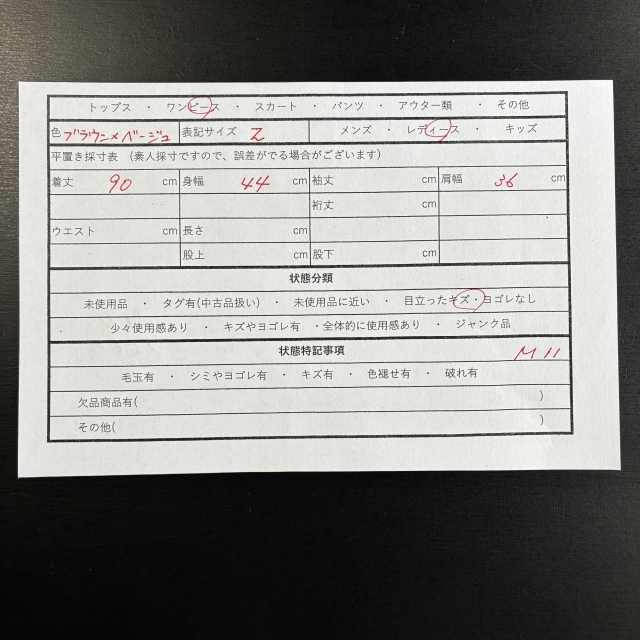 トップス ・ ワンピース ・ スカート ・ パンツ ・ アウター類 ・ その他
色 ブラウン×ベージュ 表記サイズ 2 メンズ ・ レディース ・ キッズ
平置き採寸表 (素人採寸ですので、誤差がでる場合がございます)
着丈 90 cm 身幅 44 cm 袖丈 cm 肩幅 36 cm
裄丈 cm
ウエスト cm 長さ cm
股上 cm 股下 cm
状態分類
未使用品 ・ タグ有(中古品扱い) ・ 未使用品に近い ・ 目立ったキズ・ヨゴレなし
少々使用感あり ・ キズやヨゴレ有 ・全体的に使用感あり ・ ジャンク品
状態特記事項 M11
毛玉有 ・ シミやヨゴレ有 ・ キズ有 ・ 色褪せ有 ・ 破れ有
欠品商品有( )
その他( )